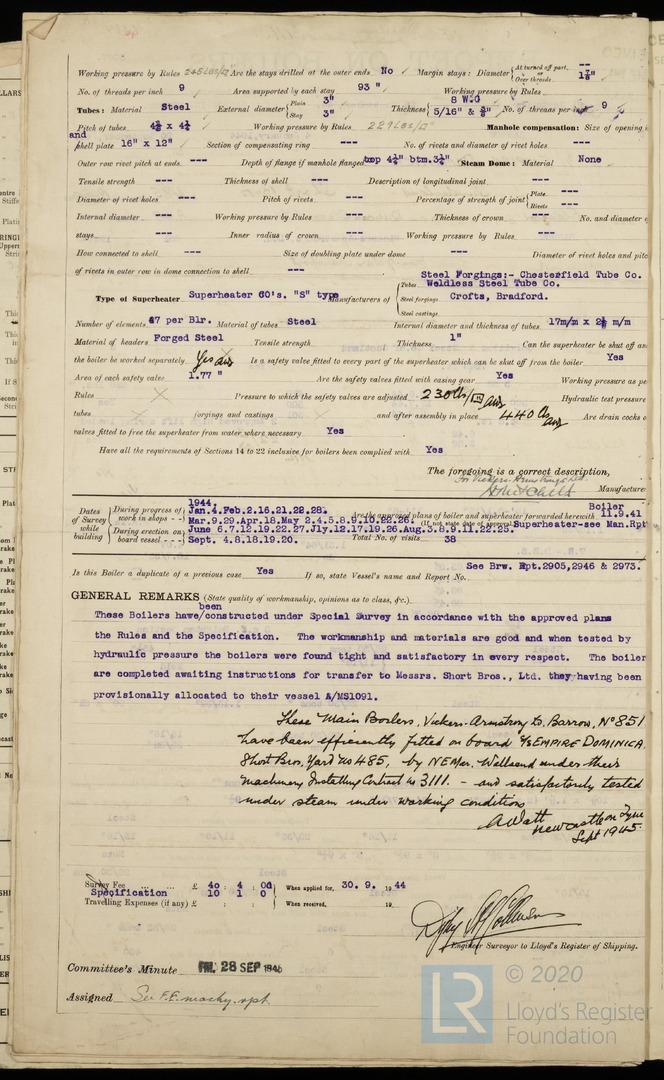 Working pressure by Rules 245 LBS/□" Are the stays drilled at the outer ends No Margin stays: Diameter { At turned off part, or Over threads --- 1⅞"
No. of threads per inch 9 Area supported by each stay 93 " Working pressure by Rules ---
Tubes: Material Steel External diameter { Plain 3" Stay 3" Thickness { 8 W.G 5/16" & ⅜" No. of threads per inch 9
Pitch of tubes 4¼ x 4¼ Working pressure by Rules 229 LBS/□" Manhole compensation: Size of opening i
and
shell plate 16" x 12" Section of compensating ring --- No. of rivets and diameter of rivet holes ---
Outer row rivet pitch at ends --- Depth of flange if manhole flanged top 4¼" btm.3¼" Steam Dome: Material None
Tensile strength --- Thickness of shell --- Description of longitudinal joint ---
Diameter of rivet holes --- Pitch of rivets --- Percentage of strength of joint { Plate --- Rivets ---
Internal diameter --- Working pressure by Rules --- Thickness of crown --- No. and diameter o
stays --- Inner radius of crown --- Working pressure by Rules ---
How connected to shell --- Size of doubling plate under dome --- Diameter of rivet holes and pitc
of rivets in outer row in dome connection to shell ---
Steel Forgings:- Chesterfield Tube Co.
Type of Superheater Superheater CO's. "S" type Manufacturers of { Tubes Weldless Steel Tube Co. Steel forgings Crofts, Bradford. Steel castings
Number of elements 47 per Blr. Material of tubes Steel Internal diameter and thickness of tubes 17m/m x 2½ m/m
Material of headers Forged Steel Tensile strength Thickness 1" Can the superheater be shut off and
the boiler be worked separately Yes Is a safety valve fitted to every part of the superheater which can be shut off from the boiler Yes
Area of each safety valve 1.77 " Are the safety valves fitted with easing gear Yes Working pressure as pe
Rules Pressure to which the safety valves are adjusted 230 lbs/□" Hydraulic test pressure
tubes forgings and castings and after assembly in place 440 lbs Are drain cocks o
valves fitted to free the superheater from water where necessary Yes
Have all the requirements of Sections 14 to 22 inclusive for boilers been complied with Yes
The foregoing is a correct description,
For Vickers-Armstrongs Ltd.
Manufacture
Dates of Survey while building { During progress of work in shops - - 1944. Jan.4.Feb.2.16.21.22.28. Mar.9.29.Apr.18.May 2.4.5.8.9.10.22.26. Are the approved plans of boiler and superheater forwarded herewith Boiler 11.9.41
(If not state date of approval) Superheater-see Man.Rpt
During erection on board vessel - - - June 6.7.12.19.22.27.Jly.12.17.19.26.Aug.3.8.9.11.22.25. Sept. 4.8.18.19.20. Total No. of visits 38
Is this Boiler a duplicate of a previous case Yes If so, state Vessel's name and Report No. See Brw. Rpt.2905,2946 & 2973.
GENERAL REMARKS (State quality of workmanship, opinions as to class, &c.)
been
These Boilers have/constructed under Special Survey in accordance with the approved plans
the Rules and the Specification. The workmanship and materials are good and when tested by
hydraulic pressure the boilers were found tight and satisfactory in every respect. The boiler
are completed awaiting instructions for transfer to Messrs. Short Bros., Ltd. they having been
provisionally allocated to their vessel A/MS1091.
These Main Boilers, Vickers-Armstrong Ld. Barrow, No 851
have been efficiently fitted on board S/S EMPIRE DOMINICA
Short Bros, Yard No 485, by N E Mar. Wallsend under their
Machinery Installing Contract No 3111. - and satisfactorily tested
under steam under working conditions
A Watt
Newcastle on Tyne
Sept 1945.
Survey Fee ... £ 40 : 4 : 0d When applied for, 30. 9. 1944
Specification 10 1 0
Travelling Expenses (if any) £ : : When received, 19
Engineer Surveyor to Lloyd's Register of Shipping.
Committee's Minute FRI. 28 SEP 1945
Assigned See F.E. machy. rpt.
LR © 2020
Lloyd's Register
Foundation